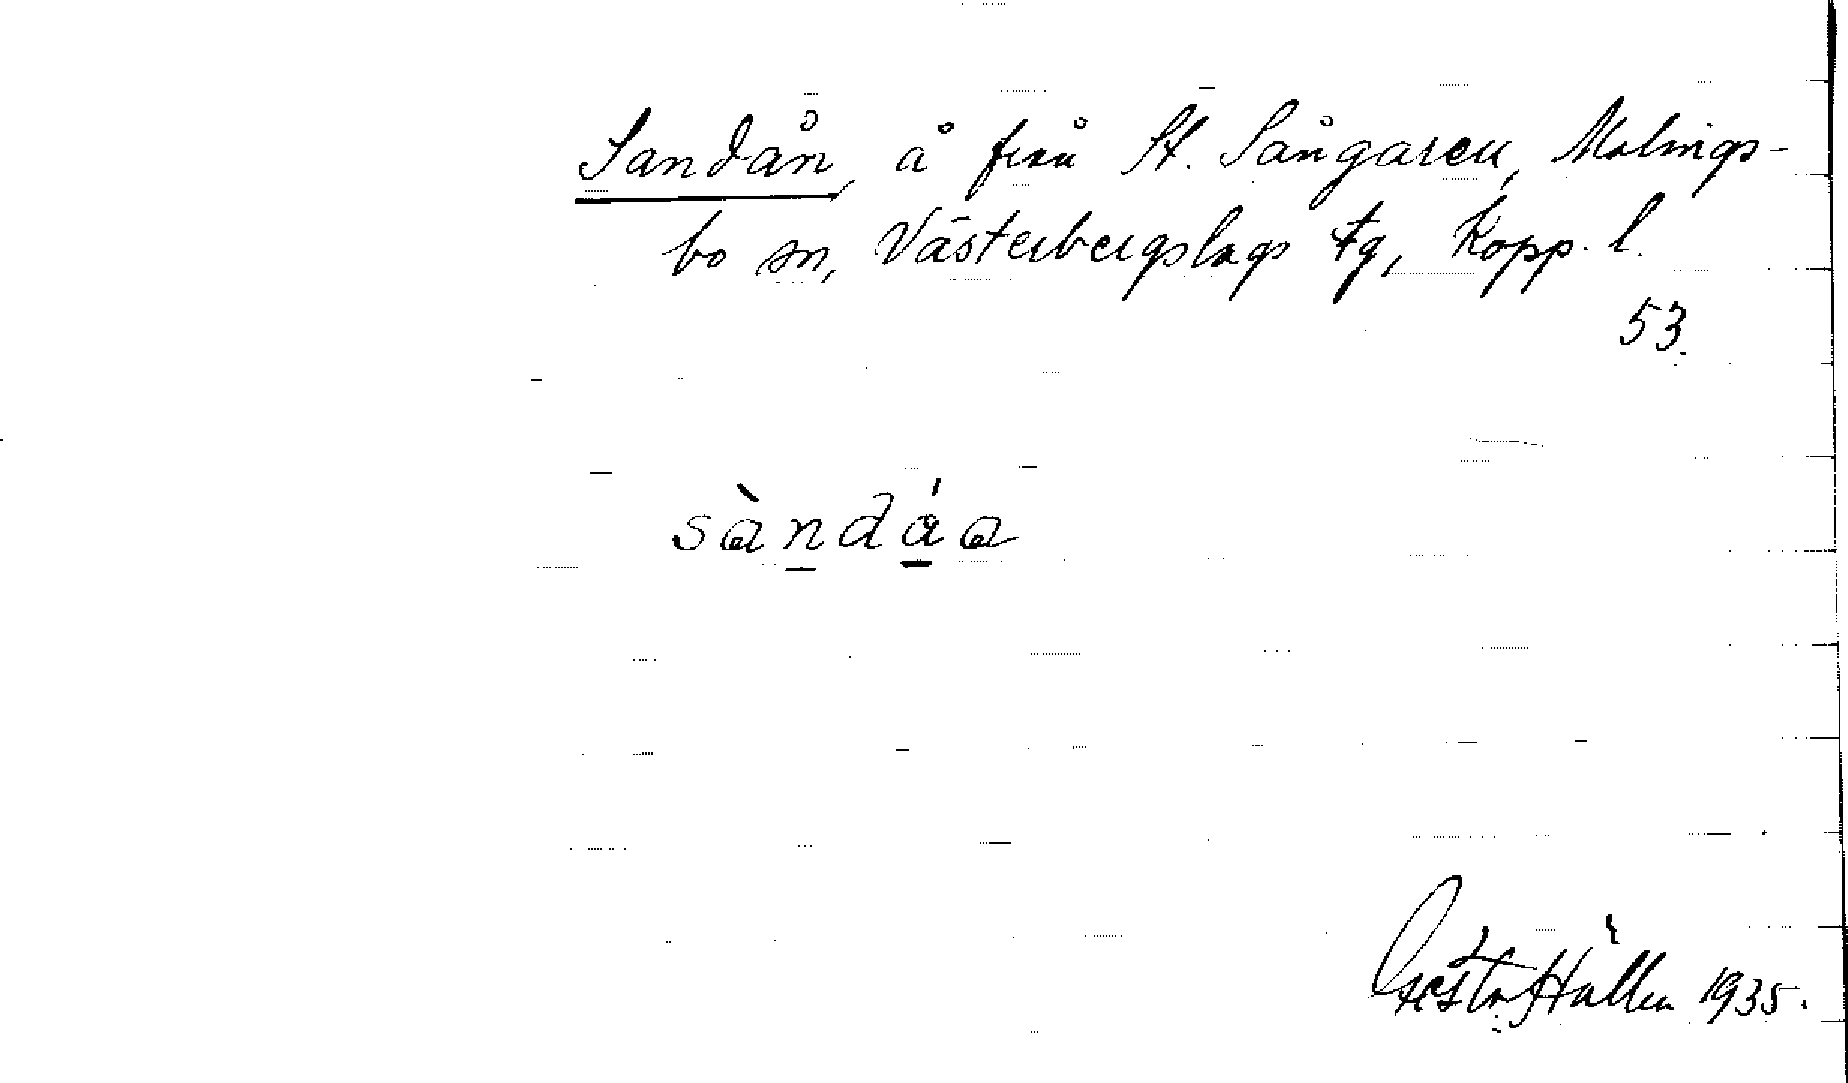 Sandån, å från St. Sångaren, Malings-
bo sn, Västerbergslags tg, Kopp. l.
53.
sàndáa
Gösta Hallén 1935.